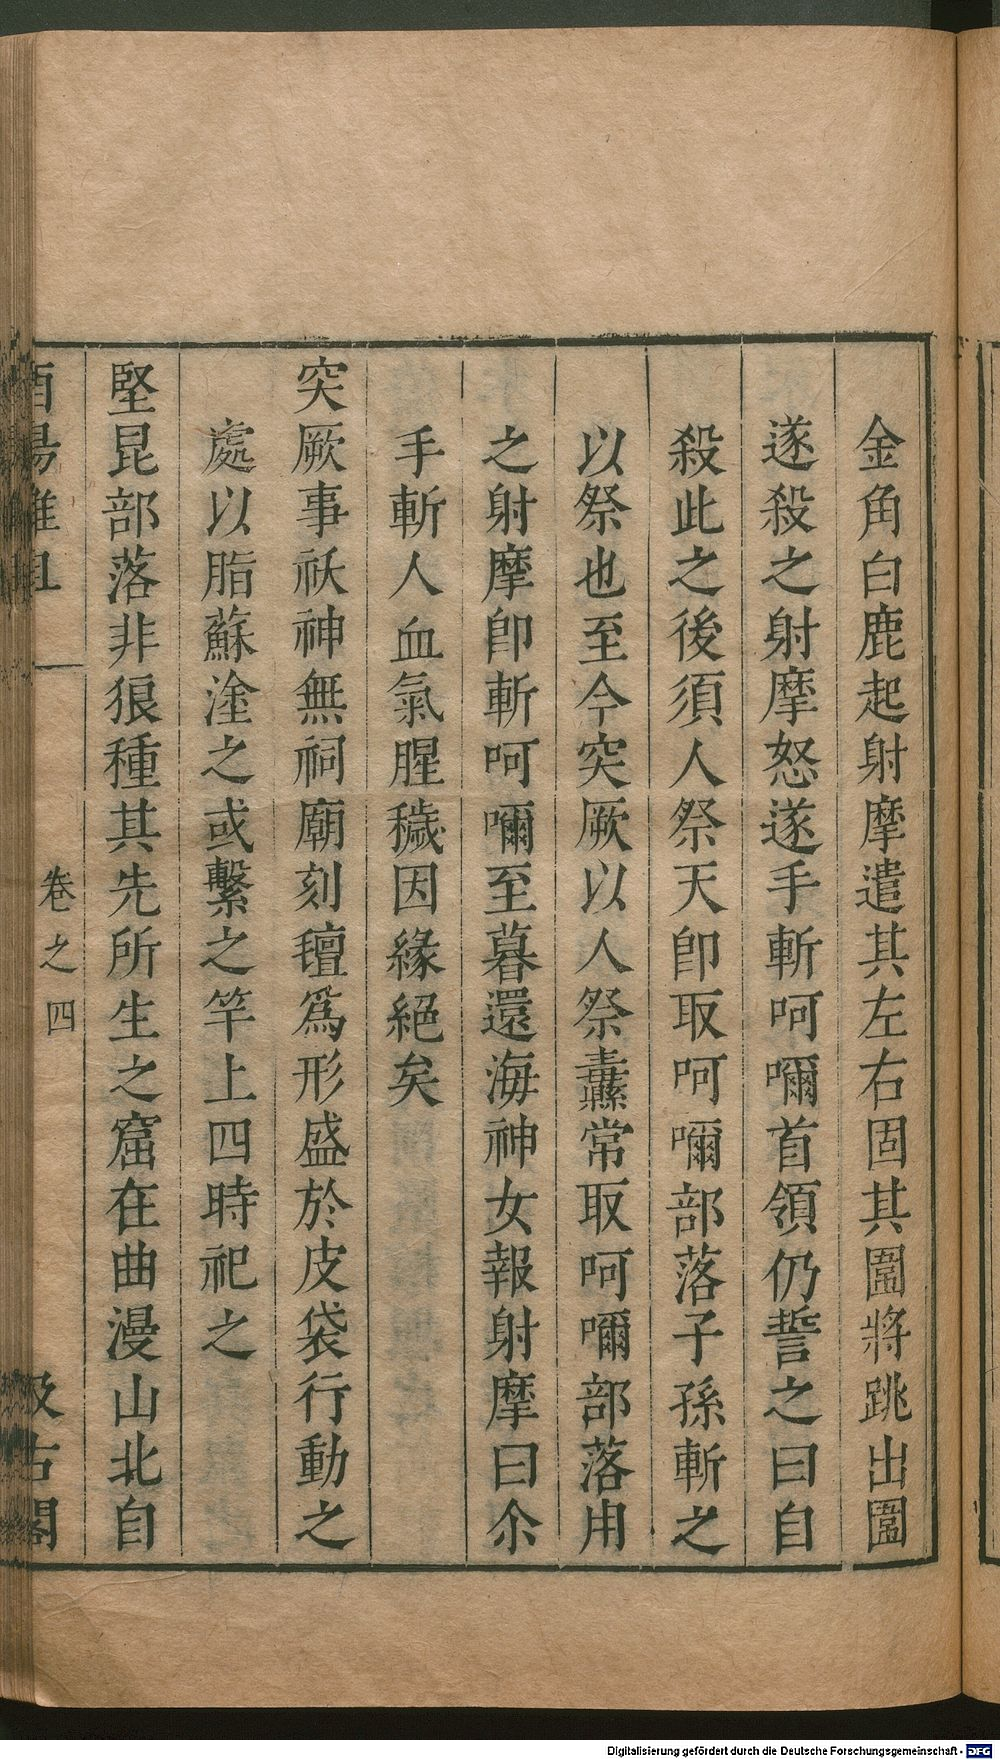 金角白鹿起射摩遣其左右固其圍將跳出圍
遂殺之射摩怒遂手斬呵㖇首領仍誓之曰自
殺此之後須人祭天卽取呵㖇部落子孫斬之
以祭也至今突厥以人祭纛常取呵㖇部落用
之射摩卽斬呵㖇至暮還海神女報射摩曰尒
手斬人血氣腥穢因緣絕矣
突厥事祅神無祠廟刻氊爲形盛於皮袋行動之
處以脂蘇塗之或繫之竿上四時祀之
堅昆部落非狼種其先所生之窟在曲漫山北自
酉陽雜俎
卷之四
汲古閣
Digitalisierung gefördert durch die Deutsche Forschungsgemeinschaft - DFG